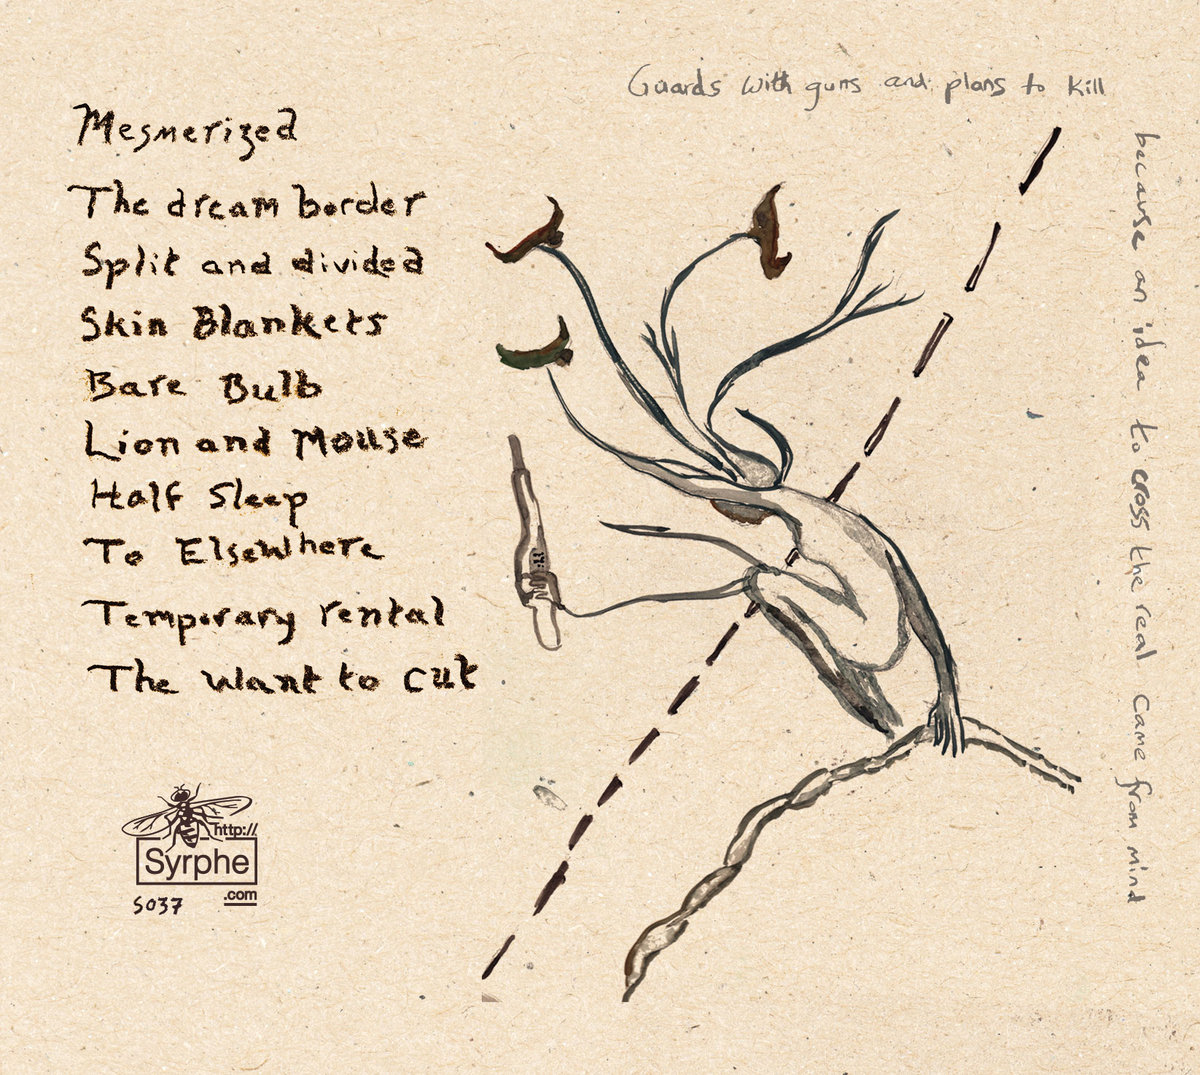 Guards with guns and plans to kill
because an idea to cross the real came from mind
Mesmerized
The dream border
Split and divided
Skin Blankets
Bare Bulb
Lion and Mouse
Half Sleep
To Elsewhere
Temporary rental
The want to cut
http://
Syrphe
.com
S037